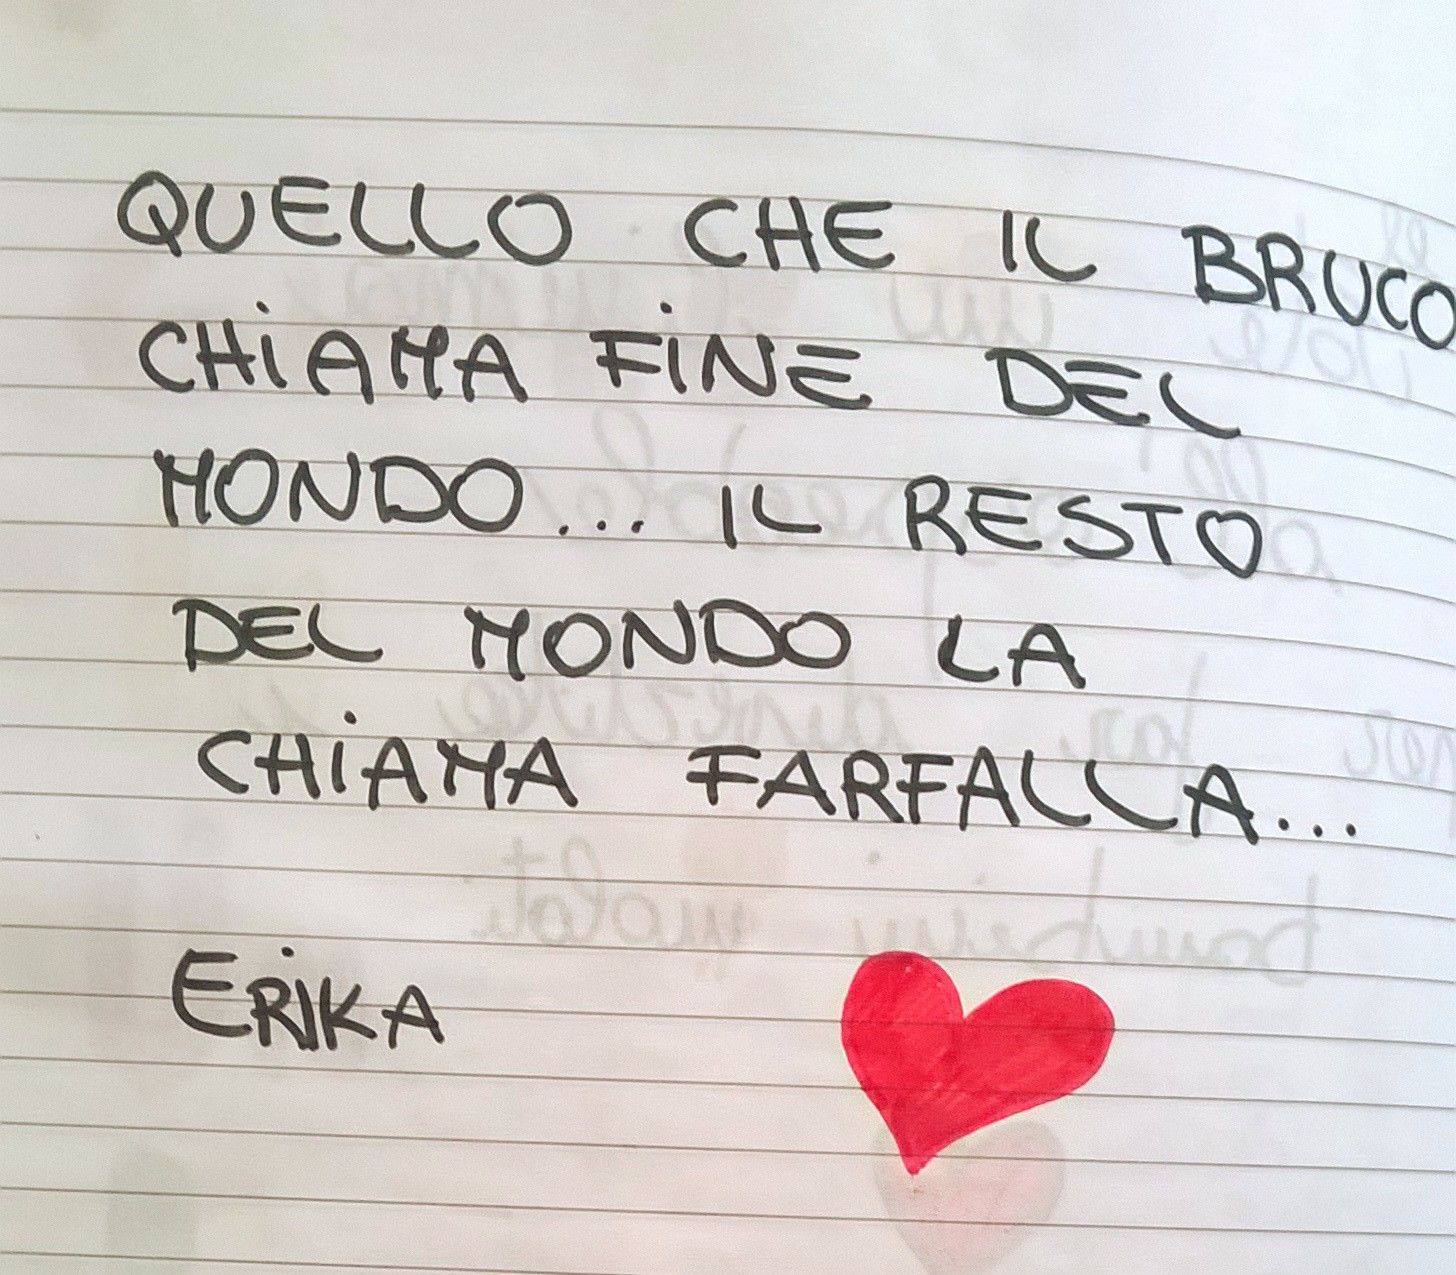 QUELLO CHE IL BRUCO
CHiAMA FiNE DEL
MONDO... IL RESTO
DEL MONDO LA
CHiAMA FARFALLA...
ERiKA